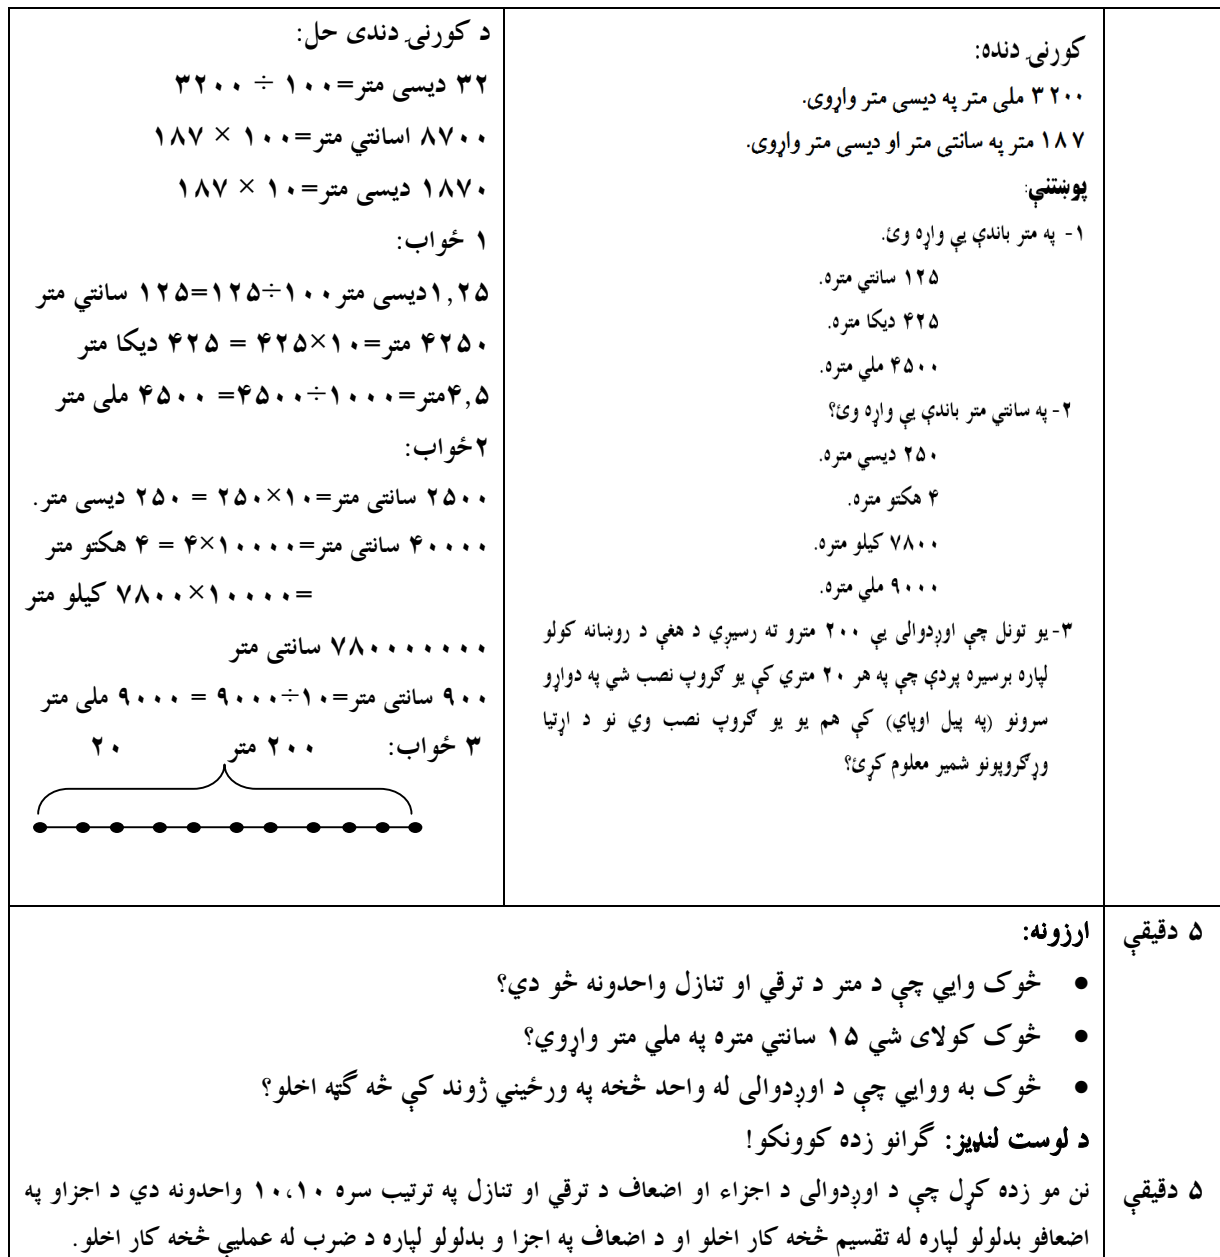 کورنۍ دنده:
۳۲۰۰ ملی متر په دیسی متر واړوی.
۱۸۷ متر په سانتی متر او دیسی متر واړوی.
پوښتنې:
۱- په متر باندې یې واړه وئ.
۱۲۵ سانتي متره.
۴۲۵ دیکا متره.
۴۵۰۰ ملي متره.
۲- په سانتي متر باندې یې واړه وئ؟
۲۵۰ دیسي متره.
۴ هکتو متره.
۷۸۰۰ کیلو متره.
۹۰۰۰ ملي متره.
۳- یو تونل چې اوږدوالی یې ۲۰۰ مترو ته رسیږي د هغې د روښانه کولو
لپاره برسیره پردې چې په هر ۲۰ متري کې یو ګروپ نصب شي په دواړو
سرونو (په پیل اوپاي) کې هم یو یو ګروپ نصب وي نو د اړتیا
وړګروپونو شمیر معلوم کړئ؟
د کورنۍ دندی حل:
۳۲ دیسی متر=۱۰۰ ÷ ۳۲۰۰
۸۷۰۰ اسانتي متر=۱۰۰ × ۱۸۷
۱۸۷۰ دیسی متر=۱۰ × ۱۸۷
۱ ځواب:
۱,۲۵دیسی متر۱۰۰÷۱۲۵=۱۲۵ سانتي متر
۴۲۵۰ متر=۱۰×۴۲۵ = ۴۲۵ دیکا متر
۴,۵متر=۱۰۰۰÷۴۵۰۰= ۴۵۰۰ ملی متر
۲ځواب:
۲۵۰۰ سانتی متر=۱۰×۲۵۰ = ۲۵۰ دیسی متر.
۴۰۰۰۰ سانتی متر=۱۰۰۰۰×۴ = ۴ هکتو متر
=۱۰۰۰۰×۷۸۰۰ کیلو متر
۷۸۰۰۰۰۰۰۰ سانتی متر
۹۰۰ سانتی متر=۱۰÷۹۰۰۰ = ۹۰۰۰ ملی متر
۳ ځواب: ۲۰۰ متر ۲۰
۵ دقیقې
ارزونه:
● څوک وایي چې د متر د ترقي او تنازل واحدونه څو دي؟
● څوک کولای شي ۱۵ سانتي متره په ملي متر واړوي؟
● څوک به ووایي چې د اوږدوالی له واحد څخه په ورځیني ژوند کې څه ګټه اخلو؟
د لوست لنډیز: گرانو زده کوونکو!
۵ دقیقې
نن مو زده کړل چې د اوږدوالی د اجزاء او اضعاف د ترقي او تنازل په ترتیب سره ۱۰،۱۰ واحدونه دي د اجزاو په
اضعافو بدلولو لپاره له تقسیم څخه کار اخلو او د اضعاف په اجزا و بدلولو لپاره د ضرب له عملیې څخه کار اخلو.